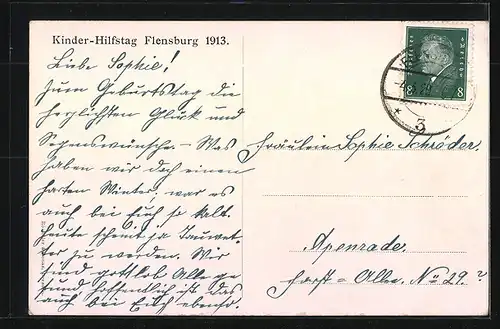 Kinder-Hilfstag Flensburg 1913.
Liebe Sophie!
Zum Geburtstag die
herzlichsten Glück und
Segenswünsche. – Was
haben wir doch einen
harten Winter, war es
auch bei Euch so kalt.
heute scheint ja Tauwet-
ter zu werden. Wir
sind gottlob Alle ge
sund hoffentlich ist das
auch bei Euch ebenso.
Deutsches Reich
8 8
3
Fräulein Sophie Schröder.
Apenrade
Forst=Allee. No 29.?